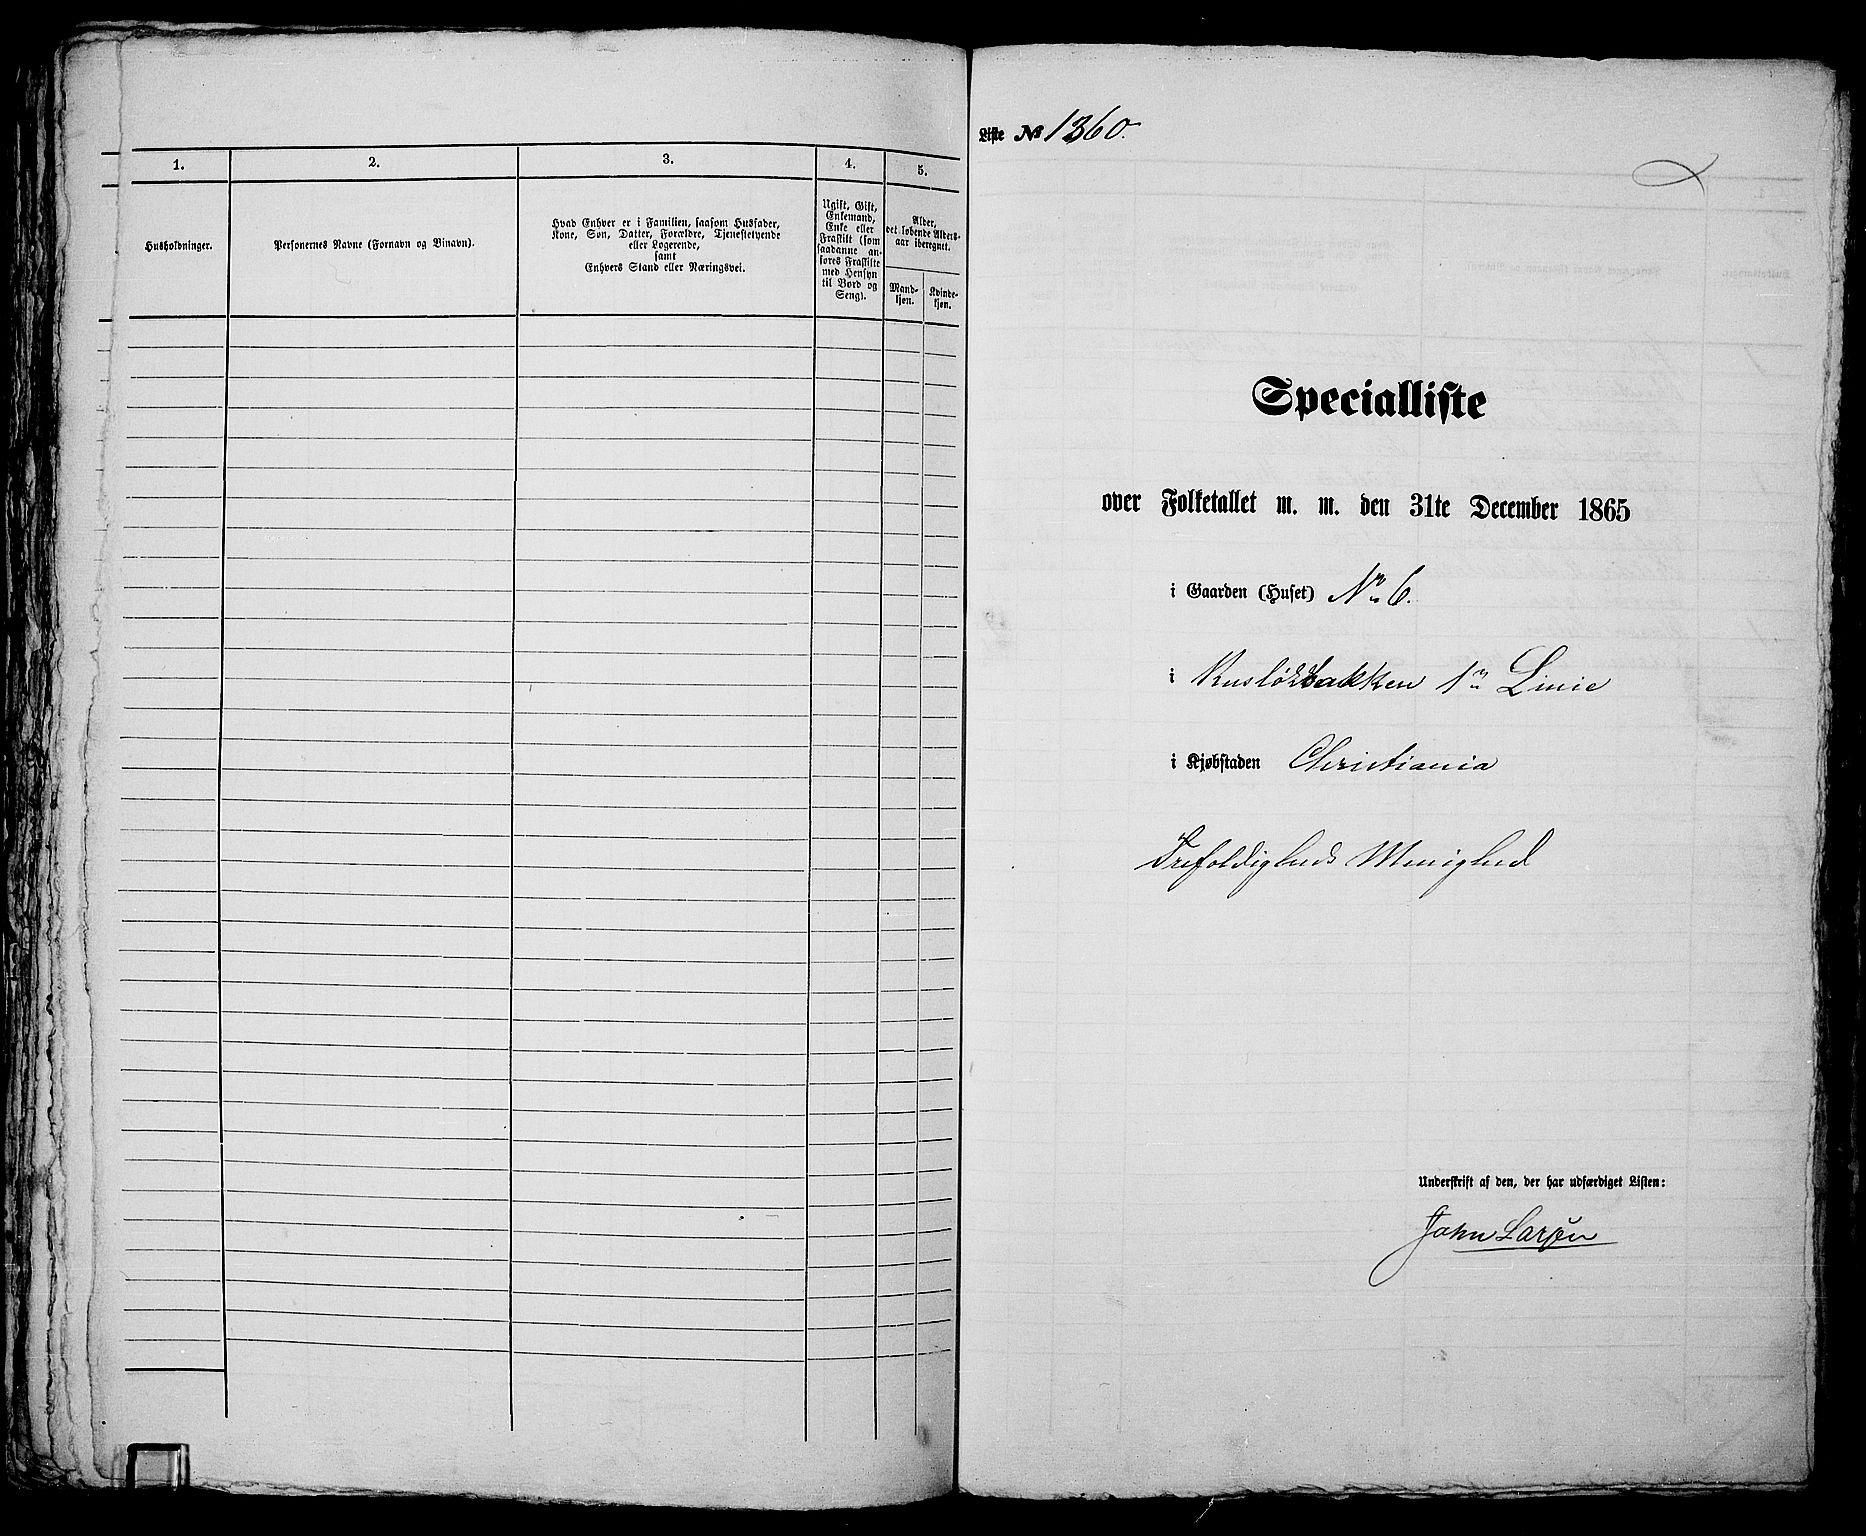 1.
2.
3.
4.
5.
Husholdninger.
Personernes Navne (Fornavn og Binavn).
Hvad Enhver er i Familien, saasom Husfader,
Kone, Søn, Datter, Forældre, Tjenestetyende
eller Logerende,
samt
Enhvers Stand eller Næringsvei.
Ugift, Gift,
Enkemand,
Enke eller
Fraskilt (som
saadanne an-
føres Fraskilte
med Hensyn
til Bord og
Seng).
Alder,
det løbende Alders-
aar iberegnet.
Mand-
kjøn.
Kvinde-
kjøn.
Liste № 1360.
Specialliste
over Folketallet m. m. den 31te December 1865
i Gaarden (Huset) No 6.
i Rusløkbakken 1n Linie
i Kjøbstaden Christiania
Trefoldigheds Menighed
Underskrift af den, der har udfærdiget Listen:
John Larsen